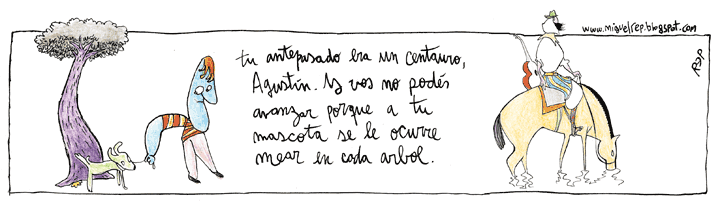 tu antepasado era un centauro,
Agustín. Y vos no podés
avanzar porque a tu
mascota se le ocurre
mear en cada arbol.
www.miguelrep.blogspot.com
rep